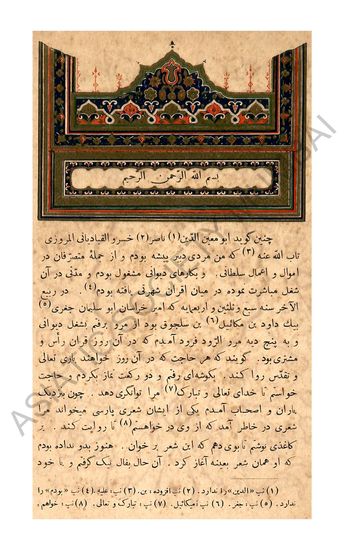 بسم الله الرحمن الرحیم
چنین گوید ابو معین الدین (۱) ناصر (۲) خسرو القبادیانی المروزی
تاب الله عنه (۳) که من مردی دبیر پیشه بودم و از جملهٔ متصرّفان در
اموال و اعمال سلطانی . و بکارهای دیوانی مشغول بودم و مدّتی در آن
شغل مباشرت نموده در میان اقران شهرتی یافته بودم (۴) در ربیع
الآخر سنه سبع و ثلثین و اربعمایه که امیر خراسان ابو سلیمان جغری (۵)
بیك داود بن مکائیل (۶) بن سلجوق بود از مرو برفتم بشغل دیوانی
و به پنج دیه مرو الرّود فرود آمدم که در آن روز قران رأس و
مشتری بود . گویند که هر حاجت که در آن روز خواهند باری تعالی
و تقدّس روا کند . بگوشه‌ای رفتم و دو رکعت نماز بکردم و حاجت
خواستم تا خدای تعالی و تبارك (۷) مرا توانگری دهد . چون بنزدیك
یاران و اصحاب آمدم یکی از ایشان شعری پارسی میخواند .
شعری در خاطر آمد که از وی در خواهم (۸) تا روایت کند . بر
کاغذی نوشتم تا بوی دهم که این شعر بر خوان . هنوز بدو نداده بودم
که او همان شعر بعینه آغاز کرد . آن حال بفال نیك گرفتم و با خود
(۱) نپ «الدین» را ندارد . (۲) نپ افزوده : بن . (۳) نپ : علیه . (۴) نپ «بودم» را
ندارد . (۵) نپ : جفر . (۶) نپ : میکائیل . (۷) نپ : تبارك و تعالی . (۸) نپ : خواهم .
ASIATIC SOCIETY MUMBAI